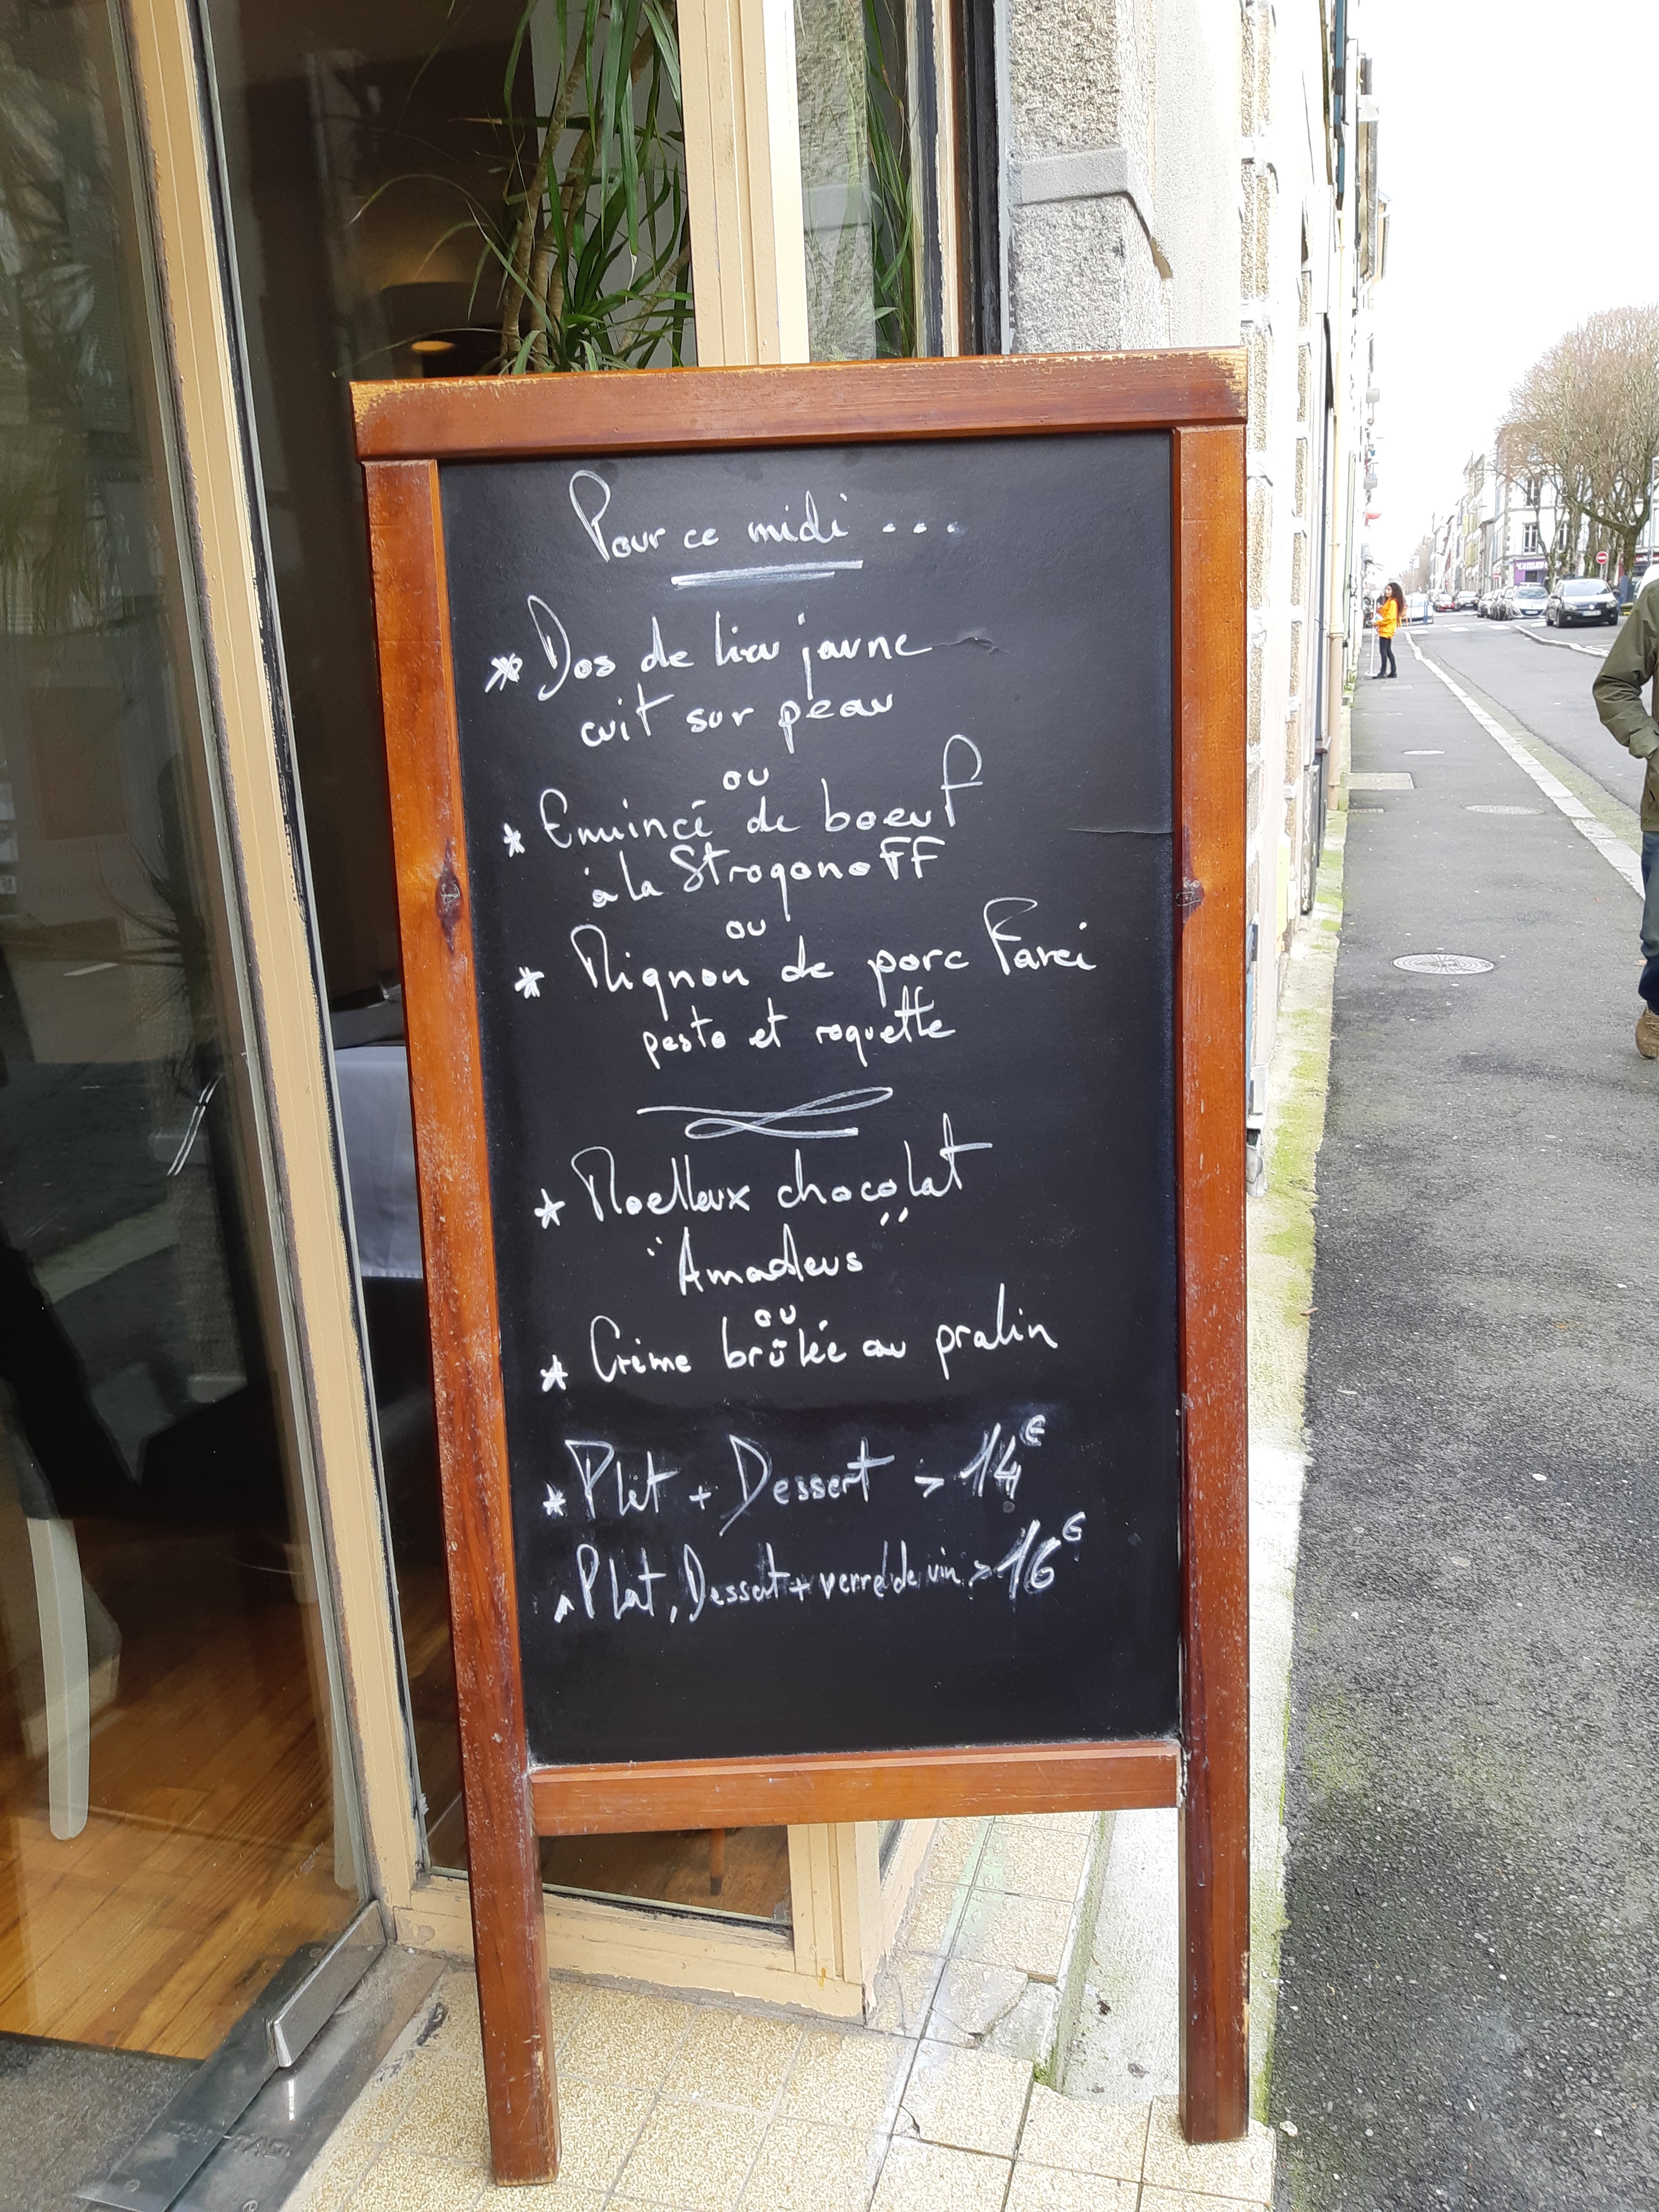 Pour ce midi ...
* Dos de lieu jaune
cuit sur peau
ou
* Emincé de boeuf
à la Strogonoff
ou
* Mignon de porc Farci
pesto et roquette
* Moelleux chocolat
"Amadeus"
ou
* Crème brûlée au pralin
* Plat + Dessert > 14€
* Plat, Dessert + verre de vin > 16€